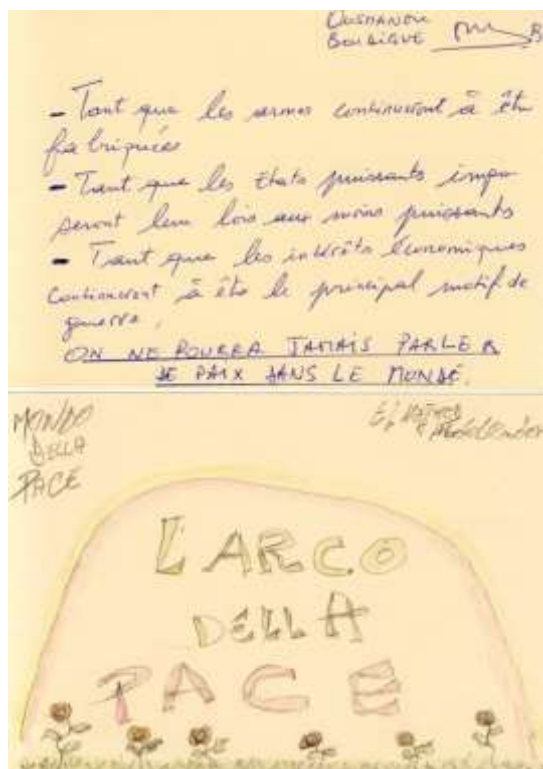 OUSMANOU
- Tant que les armes continueront à être
fabriquées
- Tant que les États puissants impo-
seront leur lois aux moins puissants
- Tant que les intérêts économiques
continueront à être le principal motif de
guerre,
ON NE POURRA JAMAIS PARLER
DE PAIX DANS LE MONDE.
MONDO
DELLA
PACE
L'ARCO
DELLA
PACE